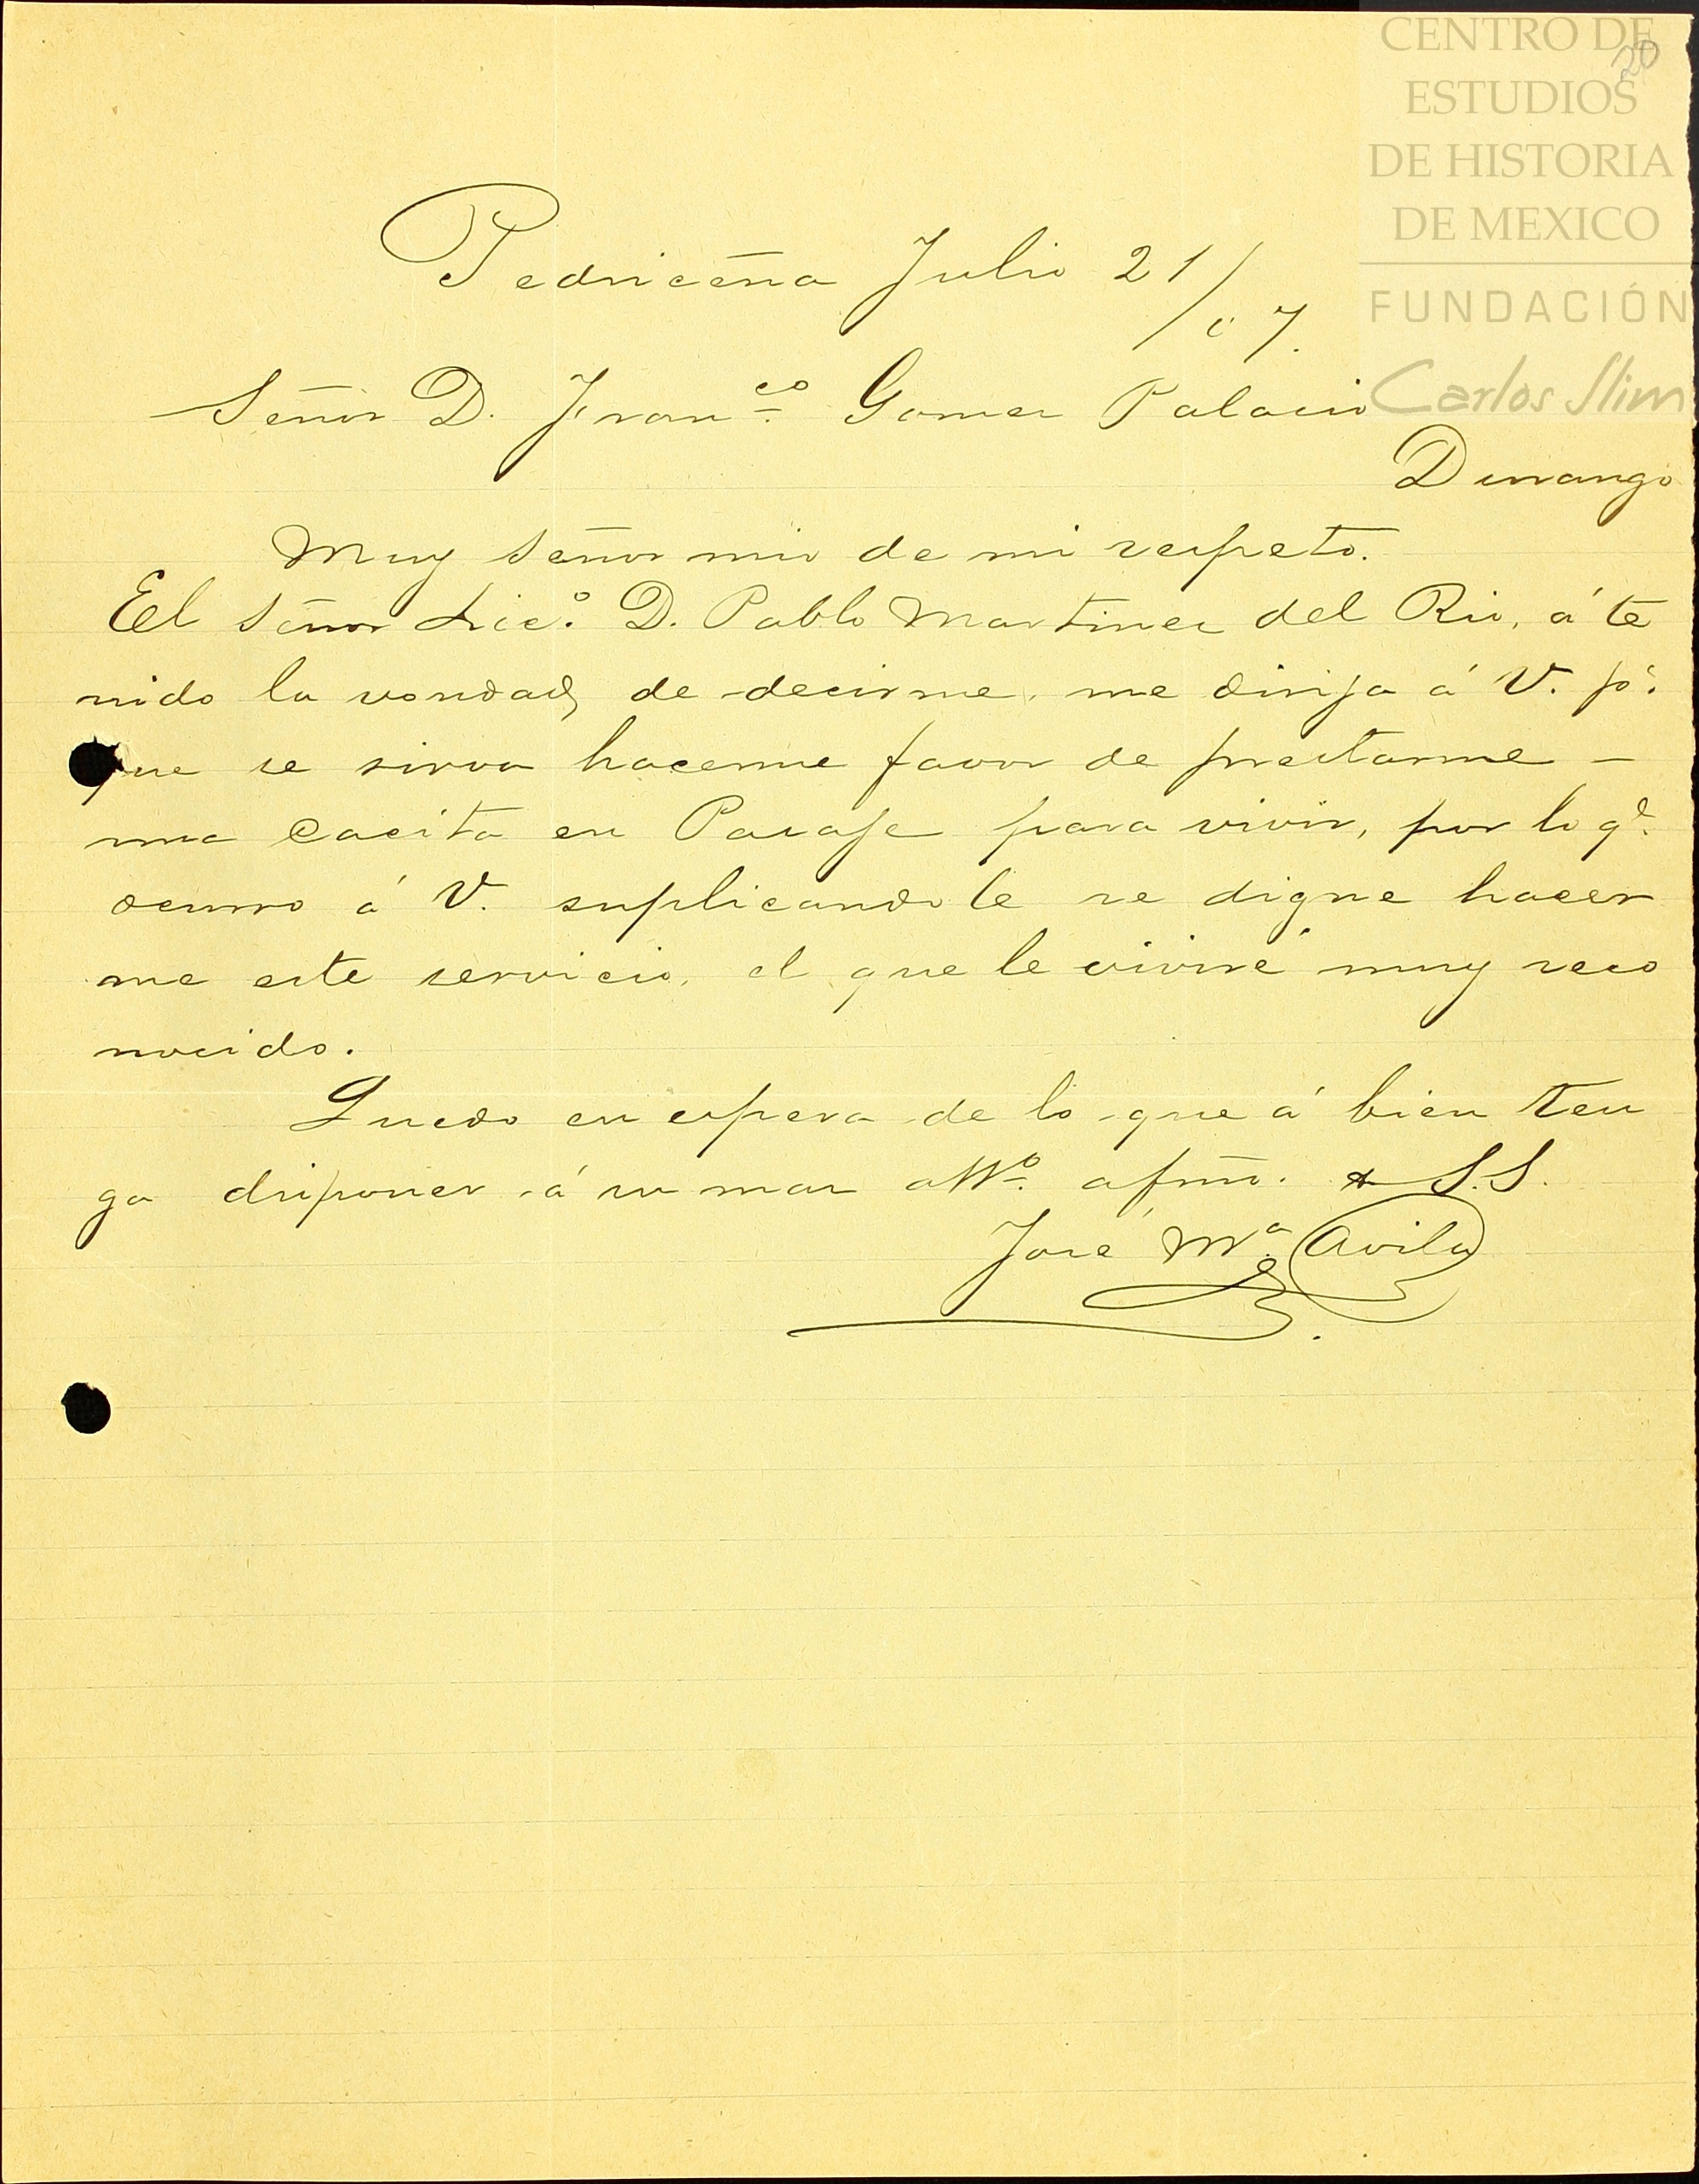 CENTRO DE
ESTUDIOS
DE HISTORIA
DE MEXICO
FUNDACIÓN
Carlos Slim
20
Pedriceña Julio 21/
/07.
Señor D. Franco. Gomez Palacio
Durango
Muy Señor mio de mi respeto.
El Señor Lico. D. Pablo Martinez del Rio, á te
nido la vondad, de decirme, me dirija á V. pa.
que se sirva hacerme favor de prestarme –
una Casita en Pasaje para vivir, por lo qe.
ocurro á V. suplicandole se digne hacer
me este servicio, el que le viviré muy reco
nocido.
Quedo en espera de lo que á bien ten
ga disponer á su mas atto. afmo. S.S.
José Ma. Avila